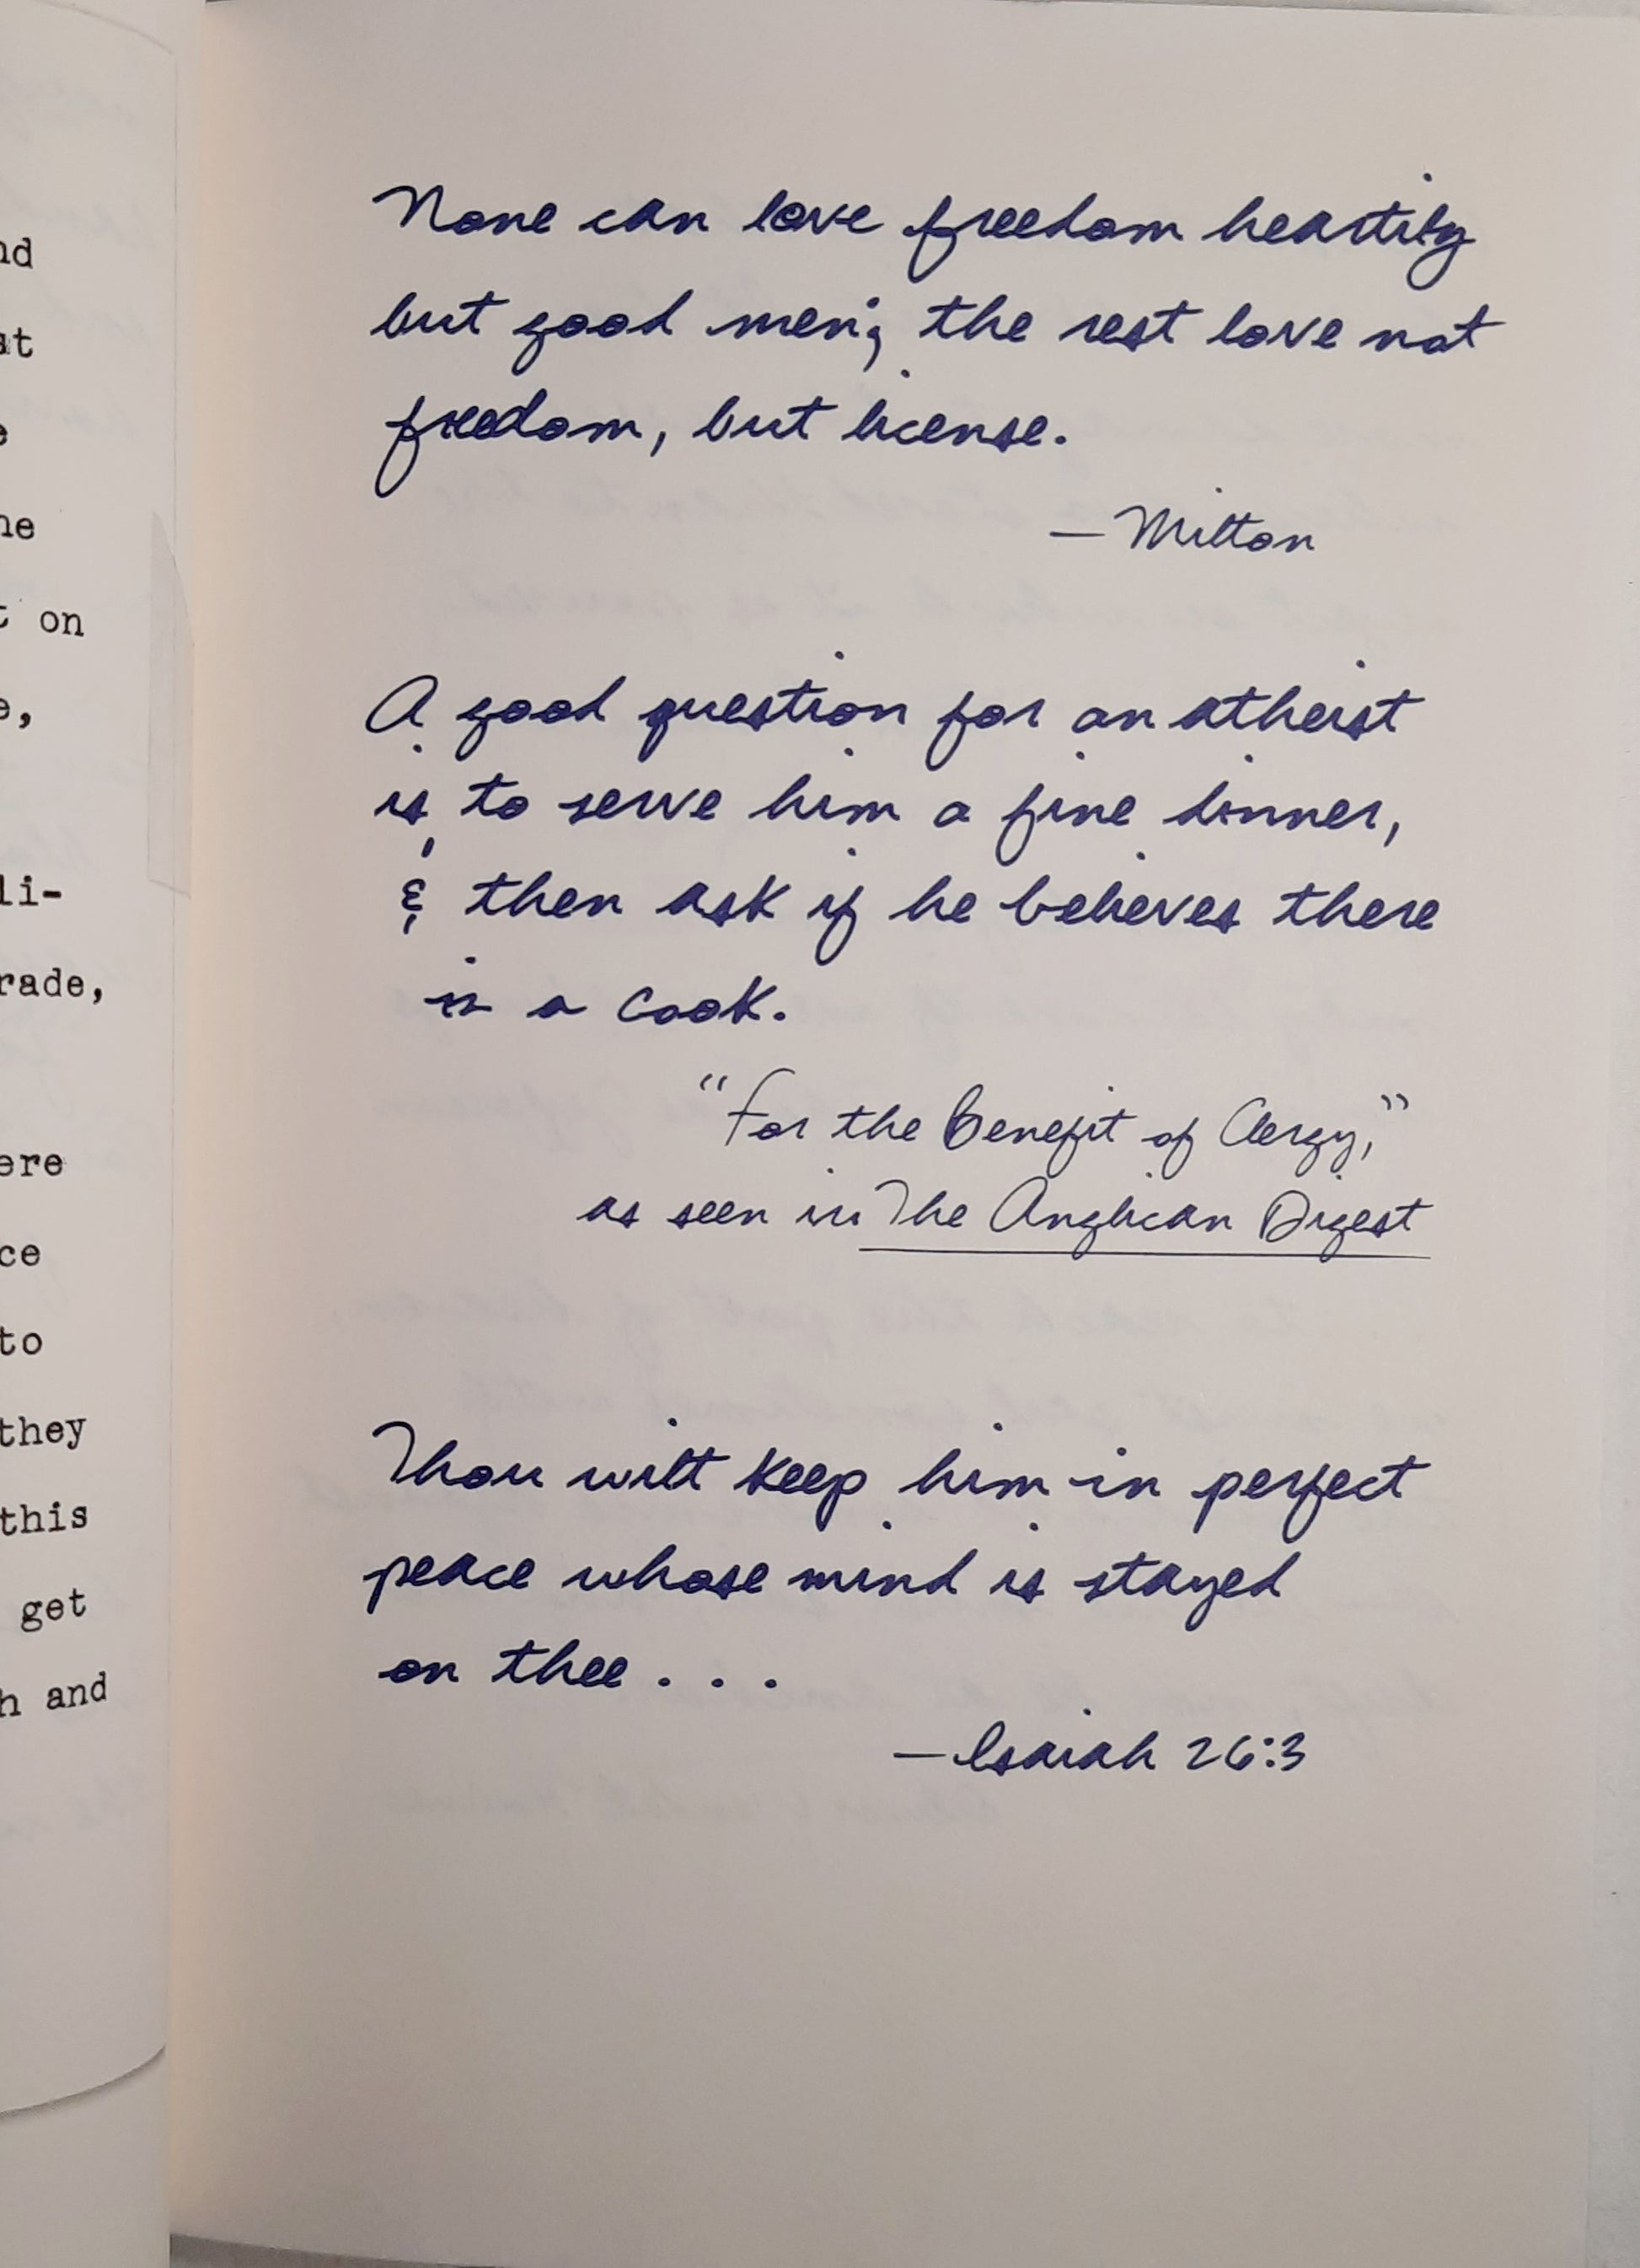 nd
at
e
he
t on
e,
li-
rade,
ere
ce
to
they
this
get
h and
None can love freedom heartily
but good men; the rest love not
freedom, but license.
—Milton
A good question for an atheist
is to serve him a fine dinner,
& then ask if he believes there
is a cook.
"For the Benefit of Clergy,"
as seen in The Anglican Digest
Thou wilt keep him in perfect
peace whose mind is stayed
on thee . . .
—Isaiah 26:3